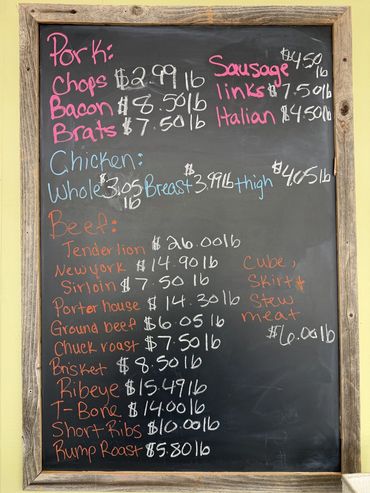 Pork:
Chops $2.99 lb
Bacon $8.50 lb
Brats $7.50 lb
Sausage $4.50 lb
links $7.50 lb
Italian $4.50 lb
Chicken:
Whole $3.05 lb Breast $3.99 lb thigh $4.05 lb
Beef:
Tenderlion $26.00 lb
New york $14.90 lb
Sirloin $7.50 lb
Porter house $14.30 lb
Ground beef $6.05 lb
Chuck roast $7.50 lb
Brisket $8.50 lb
Ribeye $15.49 lb
T-Bone $14.00 lb
Short Ribs $10.00 lb
Rump Roast $5.80 lb
Cube,
Skirt &
Stew
meat
$6.00 lb